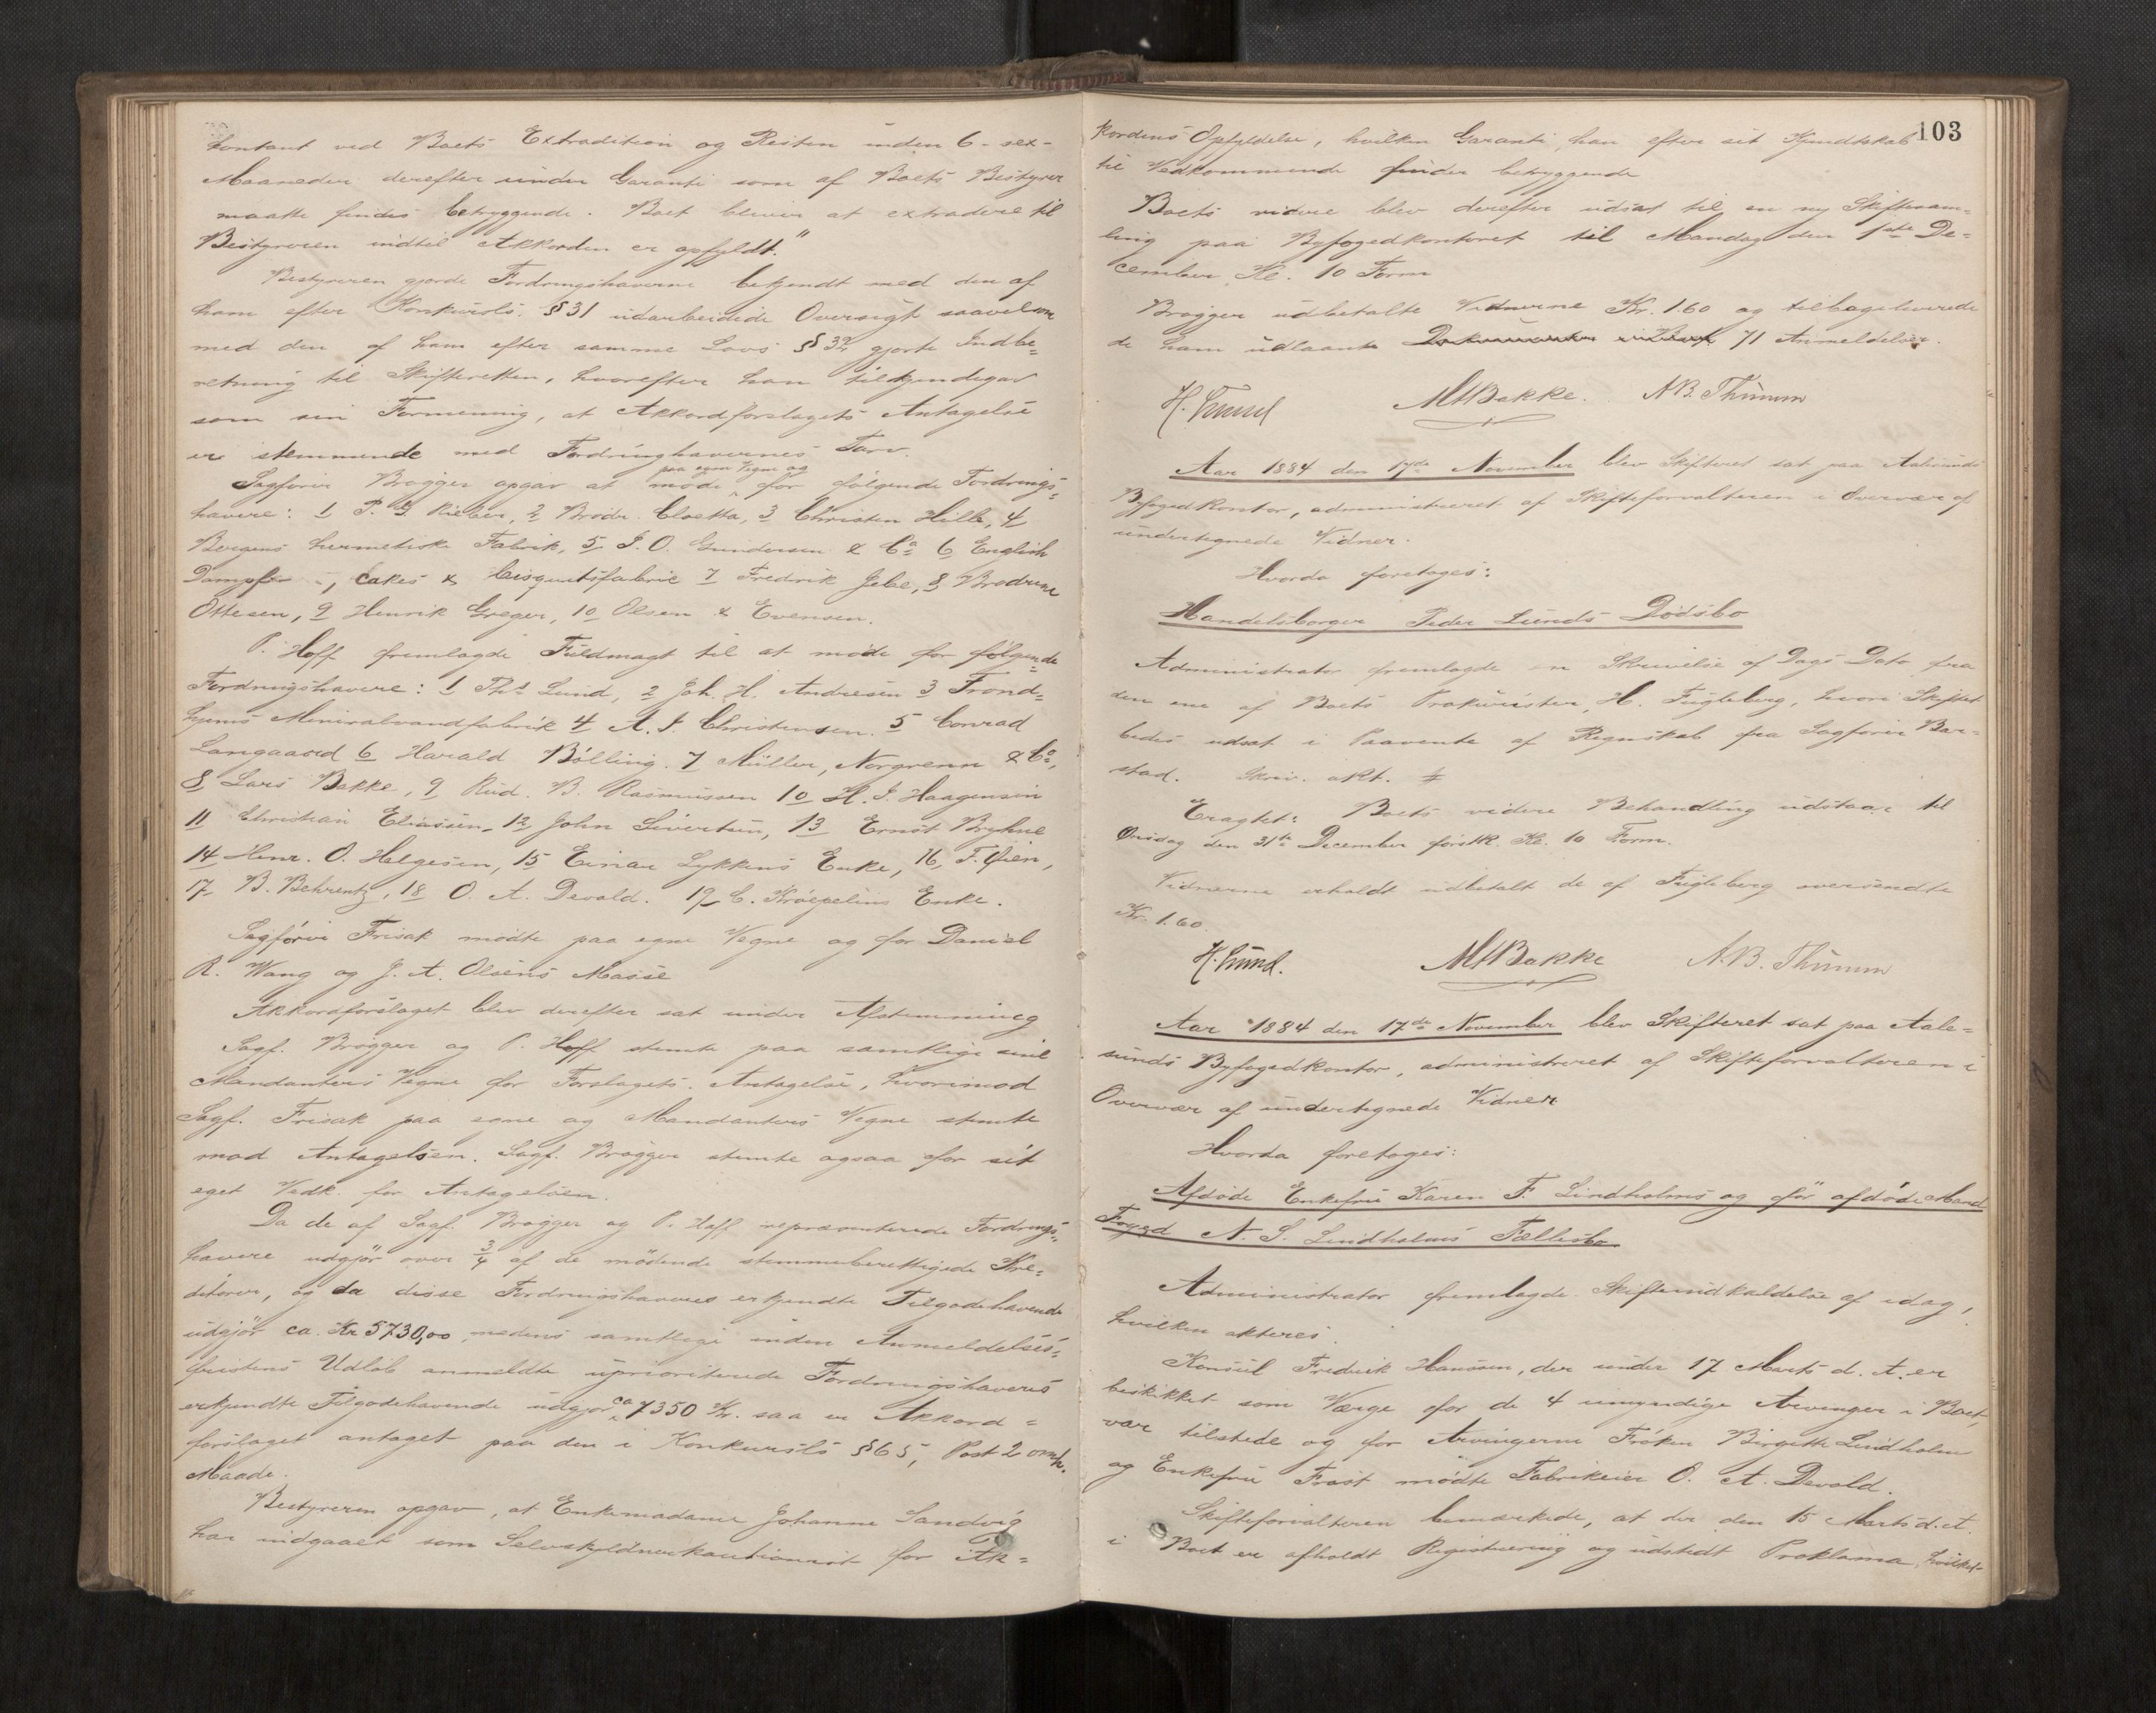 kontant ved Boets Extradition og Resten inden 6 - sex -
Maaneder derefter under Garanti som af Boets Bestyrer
maatte findes betryggende. Boet bliver at extradere til
Bestyreren indtil Akkorden er opfyldt."
Bestyreren gjorde Fordringshaverne bekjendt med den af
ham efter Konkursls. §31 udarbeidede Oversigt saavelsom
med den af ham efter samme Lovs §32 gjorte Indbe=
retning til Skifteretten, hvorefter han tilkjendegav
som sin Formening, at Akkordforslagets Antagelse
er stemmende med Fordringhavernes Tarv.
paa egne Vegne og
Sagfører Brøgger opgav at møde for følgende Fordrings=
havere: 1 P. G. Rieber, 2 Brødr. Cloetta, 3 Christen Hille, 4
Bergens hermetiske Fabrik, 5 J. O. Gundersen & Co 6 English
Dampf , Cakes & biscuitsfabric 7 Fredrik Jebe, 8 Brødrene
Ottesen, 9 Henrik Greger, 10 Olsen & Evensen.
P. Hoff fremlagde Fuldmagt til at møde for følgende
Fordringshavere: 1 Ths Lund, 2 Joh. H. Andresen 3 Trond=
hjems Miniralvandfabrik 4 A. J. Christensen. 5 Conrad
Langaard 6 Harald Bølling. 7 Müller, Norgrenn & Co,
8 Lars Bakke, 9 Rud. B. Rasmussen 10 H. J. Haagensen
11 Christian Eliassen, 12 John Sivertsen, 13 Ernst Bryhne
14 Henr. O. Helgesen, 15 Einar Lykkens Enke, 16, F. Øien,
17 B. Behrentz, 18 O. A. Devold. 19 C. Krøepelins Enke.
Sagfører Frisak mødte paa egne Vegne og for Daniel
R. Wang og J. A. Olsens Masse
Akkordforslaget blev derefter sat under Afstemming
Sagf. Brøgger og P. Hoff stemte paa samtlige sine
Mandanters Vegne for Forslagets Antagelse, hvorimod
Sagf. Frisak paa egne og Mandanters Vegne stemte
mod Antagelsen. Sagf. Brøgger stemte ogsaa for sit
eget Vedk. for Antagelsen.
Da de af Sagf. Brøgger og P. Hoff repræsenterede Fordrings=
havere udgjør over 3/4 af de mødende stemmeberettigede Kre=
ditorer, og da disse Fordringshaveres erkjendte Tilgodehavende
udgjør ca. Kr 5730,00 medens samtlige inden Anmeldelses=
fristens Udløb anmeldte uprioriterede Fordringshaveres
erkjendte Tilgodehavende udgjør ca 7350 Kr. saa er Akkord=
forslaget antaget paa den i Konkursls §65, Post 2 omh.
Maade.
Bestyreren opgav, at Enkemadame Johanne Sandvig
har indgaaet som Selvskyldnerkautionist for Ak=
103
kordens Opfyldelse, hvilken Garanti han efter sit Kjendtskab
til Vedkommende finder betryggende
Boets videre blev derefter udsat til en ny Skiftesam=
ling paa Byfogedkontoret til Mandag den 1ste De=
cember Kl. 10 Form
Brøgger udbetalte Vidnerne Kr. 1.60 og tilbageleverede
de ham udlaante 71 Anmeldelser.
H. Lund MHBakke. A B. Thümm
Aar 1884 den 17de November blev Skifteret sat paa Aalesunds
Byfogedkontor, administreret af Skifteforvalteren i Overvær af
undertegnede Vidner.
Hvorda foretoges:
Handelsborger Peder Lunds Dødsbo
Administrator fremlagde en Skrivelse af Dags Dato fra
den ene af Boets Prokurister, H. Fugleberg, hvori Skiftet
bedes udsat i Paavente af Regnskab fra Sagfører Bar=
stad. Skriv. akt.
Eragtet: Boets videre Behandling udstaar til
Onsdag den 31te December førstk. Kl. 10 Form.
Vidnerne erholdt udbetalt de af Fugleberg oversendte
Kr. 1.60.
H. Lund. MHBakke A. B. Thümm
Aar 1884 den 17de November blev Skifteret sat paa Aale=
sunds Byfogedkontor, administreret af Skifteforvalteren i
Overvær af undertegnede Vidner
Hvorda foretoges:
Afdøde Enkefrue Karen F. Lindholms og før afdøde Mand
Foged N. S. Lindholms Fællesbo
Administrator fremlagde Skifteindkaldelse af idag,
hvilken akteres.
Konsul Fredrik Hanssen, der under 17 Marts d. A. er
beskikket som Værge for de 4 umyndige Arvinger i Boet,
var tilstede og for Arvingerne Frøken Birgitte Lindholm
og Enkefrue Frost mødte Fabrikeier O. A. Devold.
Skifteforvalteren bemærkede, at der den 15 Marts d. A.
i Boet er afholdt Registrering og udstedt Proklama, hvilket